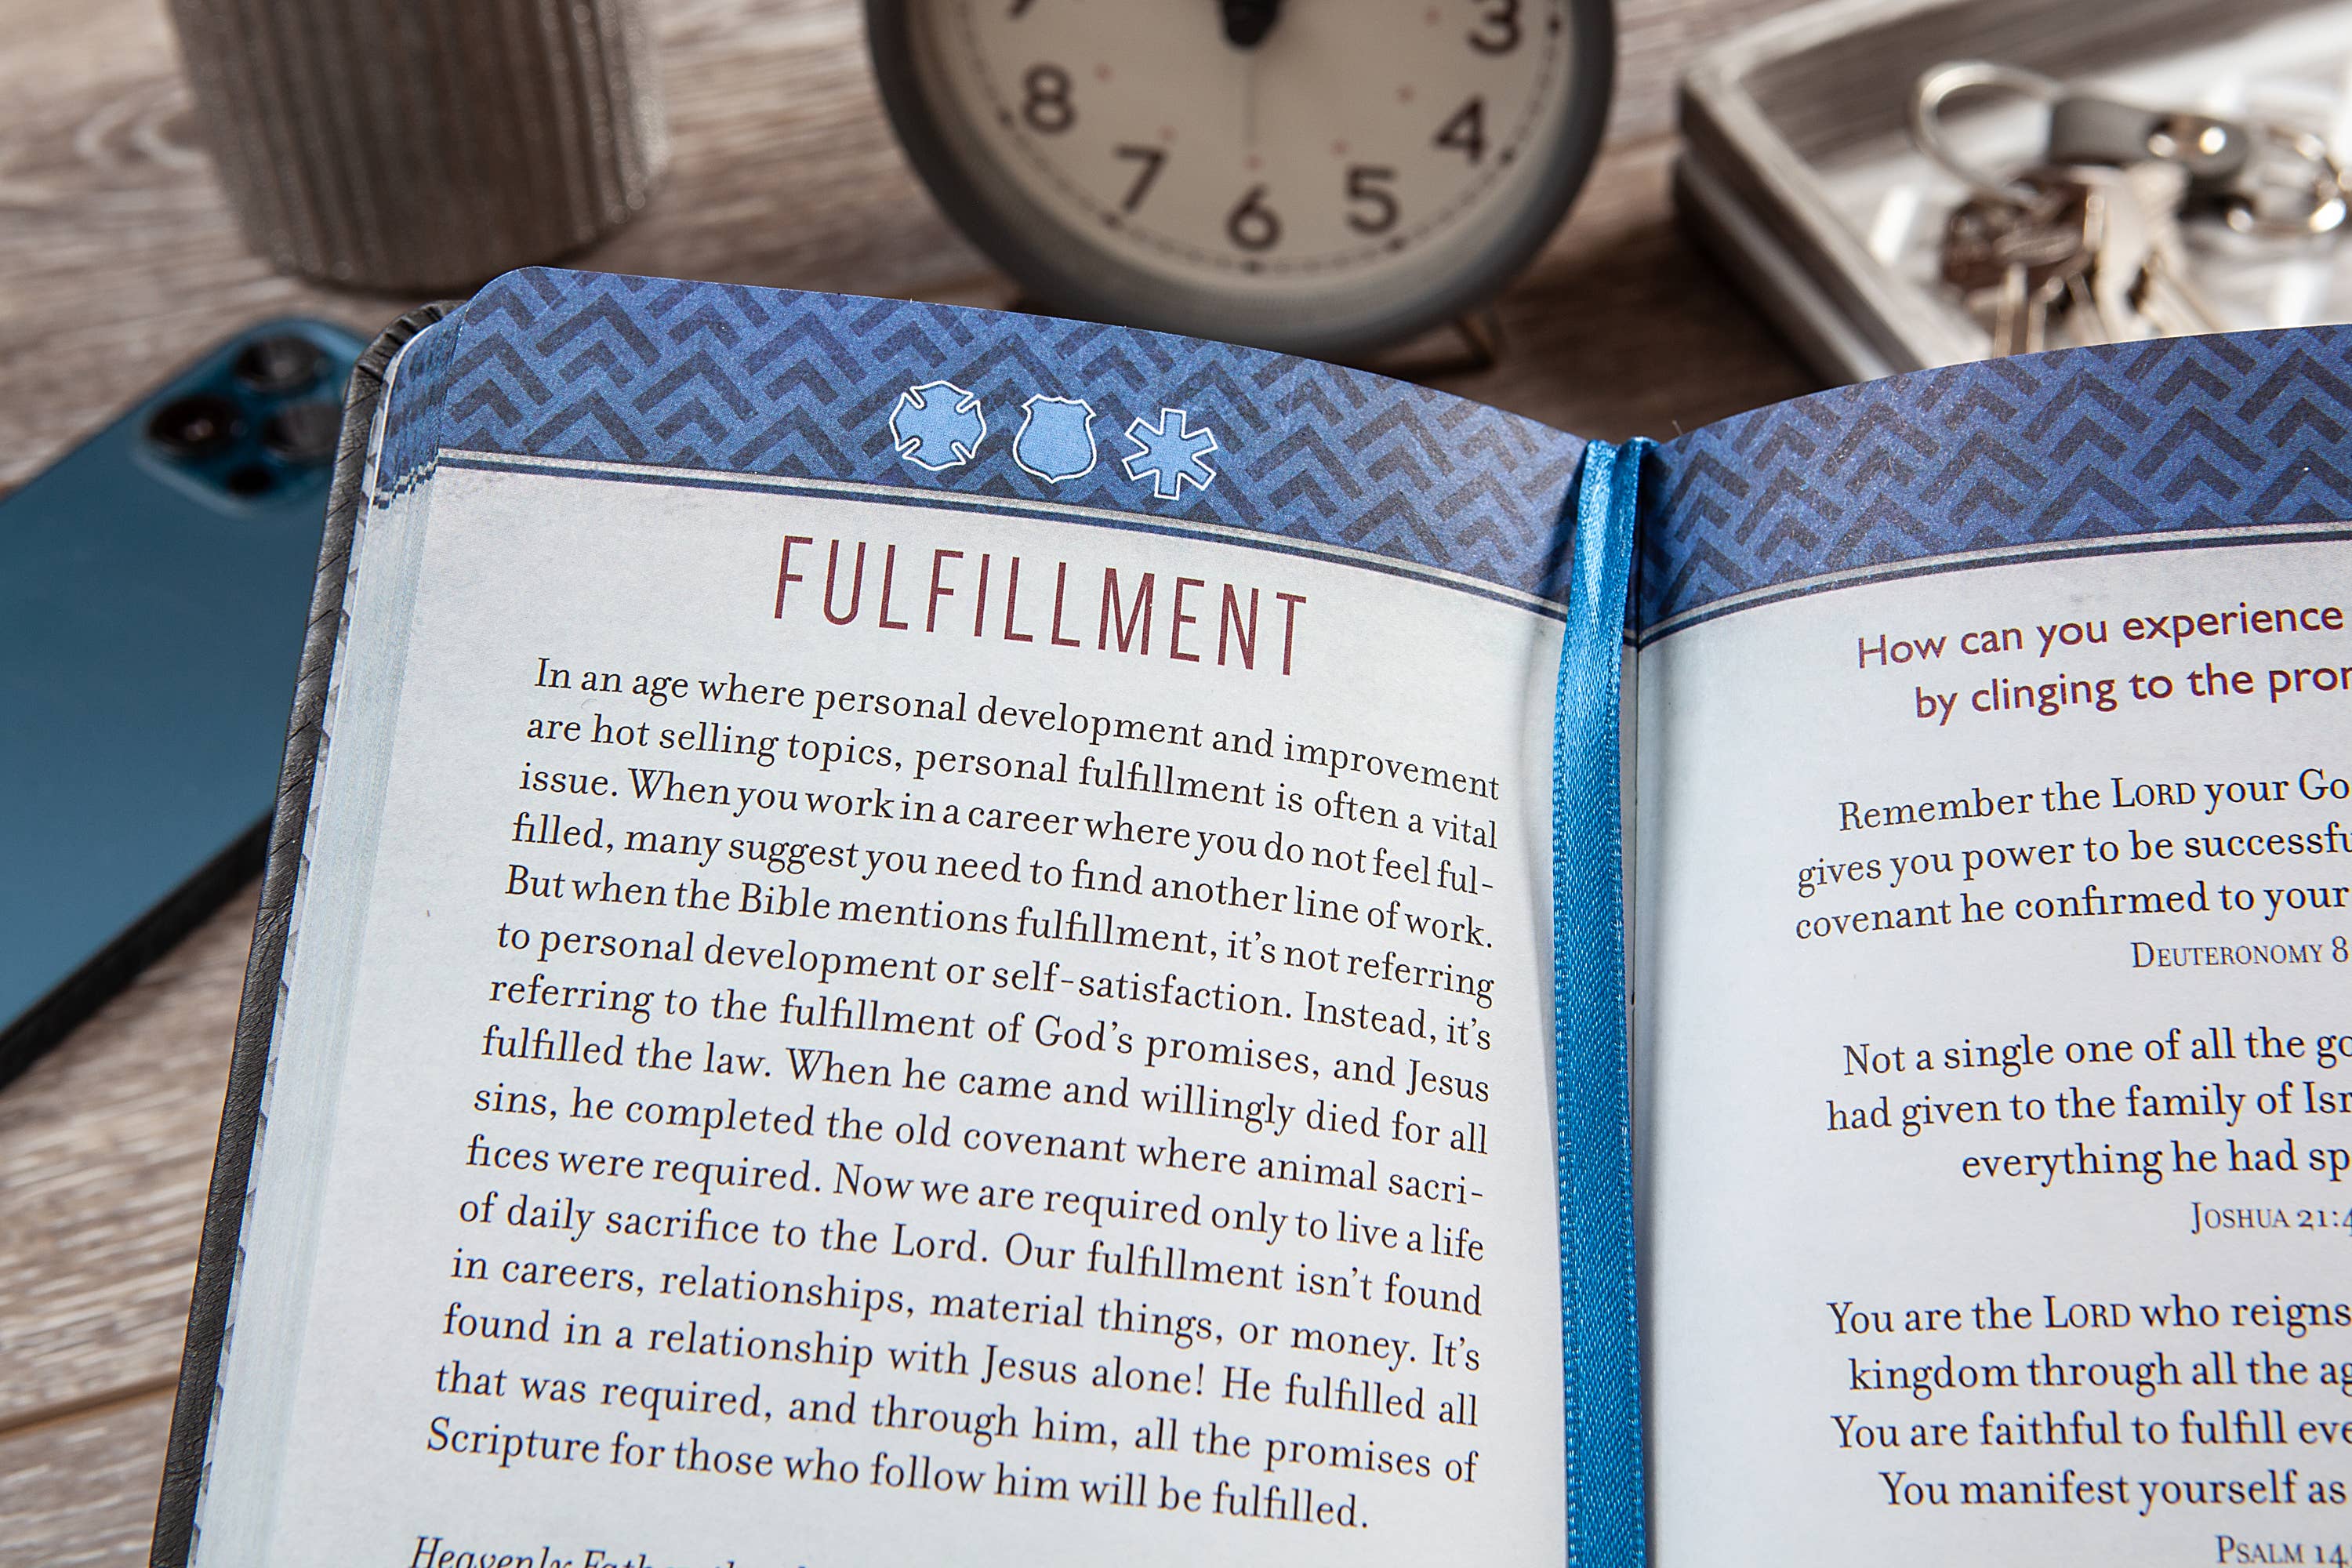 3
8
4
7
5
6
FULFILLMENT
In an age where personal development and improvement
are hot selling topics, personal fulfillment is often a vital
issue. When you work in a career where you do not feel ful-
filled, many suggest you need to find another line of work.
But when the Bible mentions fulfillment, it's not referring
to personal development or self-satisfaction. Instead, it's
referring to the fulfillment of God's promises, and Jesus
fulfilled the law. When he came and willingly died for all
sins, he completed the old covenant where animal sacri-
fices were required. Now we are required only to live a life
of daily sacrifice to the Lord. Our fulfillment isn't found
in careers, relationships, material things, or money. It's
found in a relationship with Jesus alone! He fulfilled all
that was required, and through him, all the promises of
Scripture for those who follow him will be fulfilled.
Heavenly
How can you experience
by clinging to the
Remember the LORD your
gives you power to be
covenant he confirmed to your
DEUTERONOMY 8
Not a single one of all the
had given to the family of
everything he had
JOSHUA 21:
You are the LORD who reigns
kingdom through all the
You are faithful to fulfill
You manifest yourself as
PSALM 14